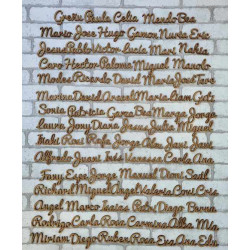 Greru Paula Celia Mando Bea
Mario Jose Hugo Gamon Nuria Eric
Jesus Pablo Victor Lucia Mari Nahia
Caro Hector Paloma Miguel Manolo
Ricardo David Maria Jose Javi
Marina David Angel Maria Liam Guti
Sonia Patricia Garza Bea Marga Jorge
Laura Jony Diana Jesus Julia Miguel
Iñaki Rosi Rafa Jorge Alex Javi Juani
Alfredo Juani Inés Vanessa Carla Ana
Fany Espe Jorge Manuel Dioni Saul
Richar Miguel Angel Valeria Cori Cris
Angel Marco Isaias Patri Diego Bruno
Rodrigo Carla Rosa Carmina Alba M
Miriam Diego Ruben Rosa Eva Ana Edu